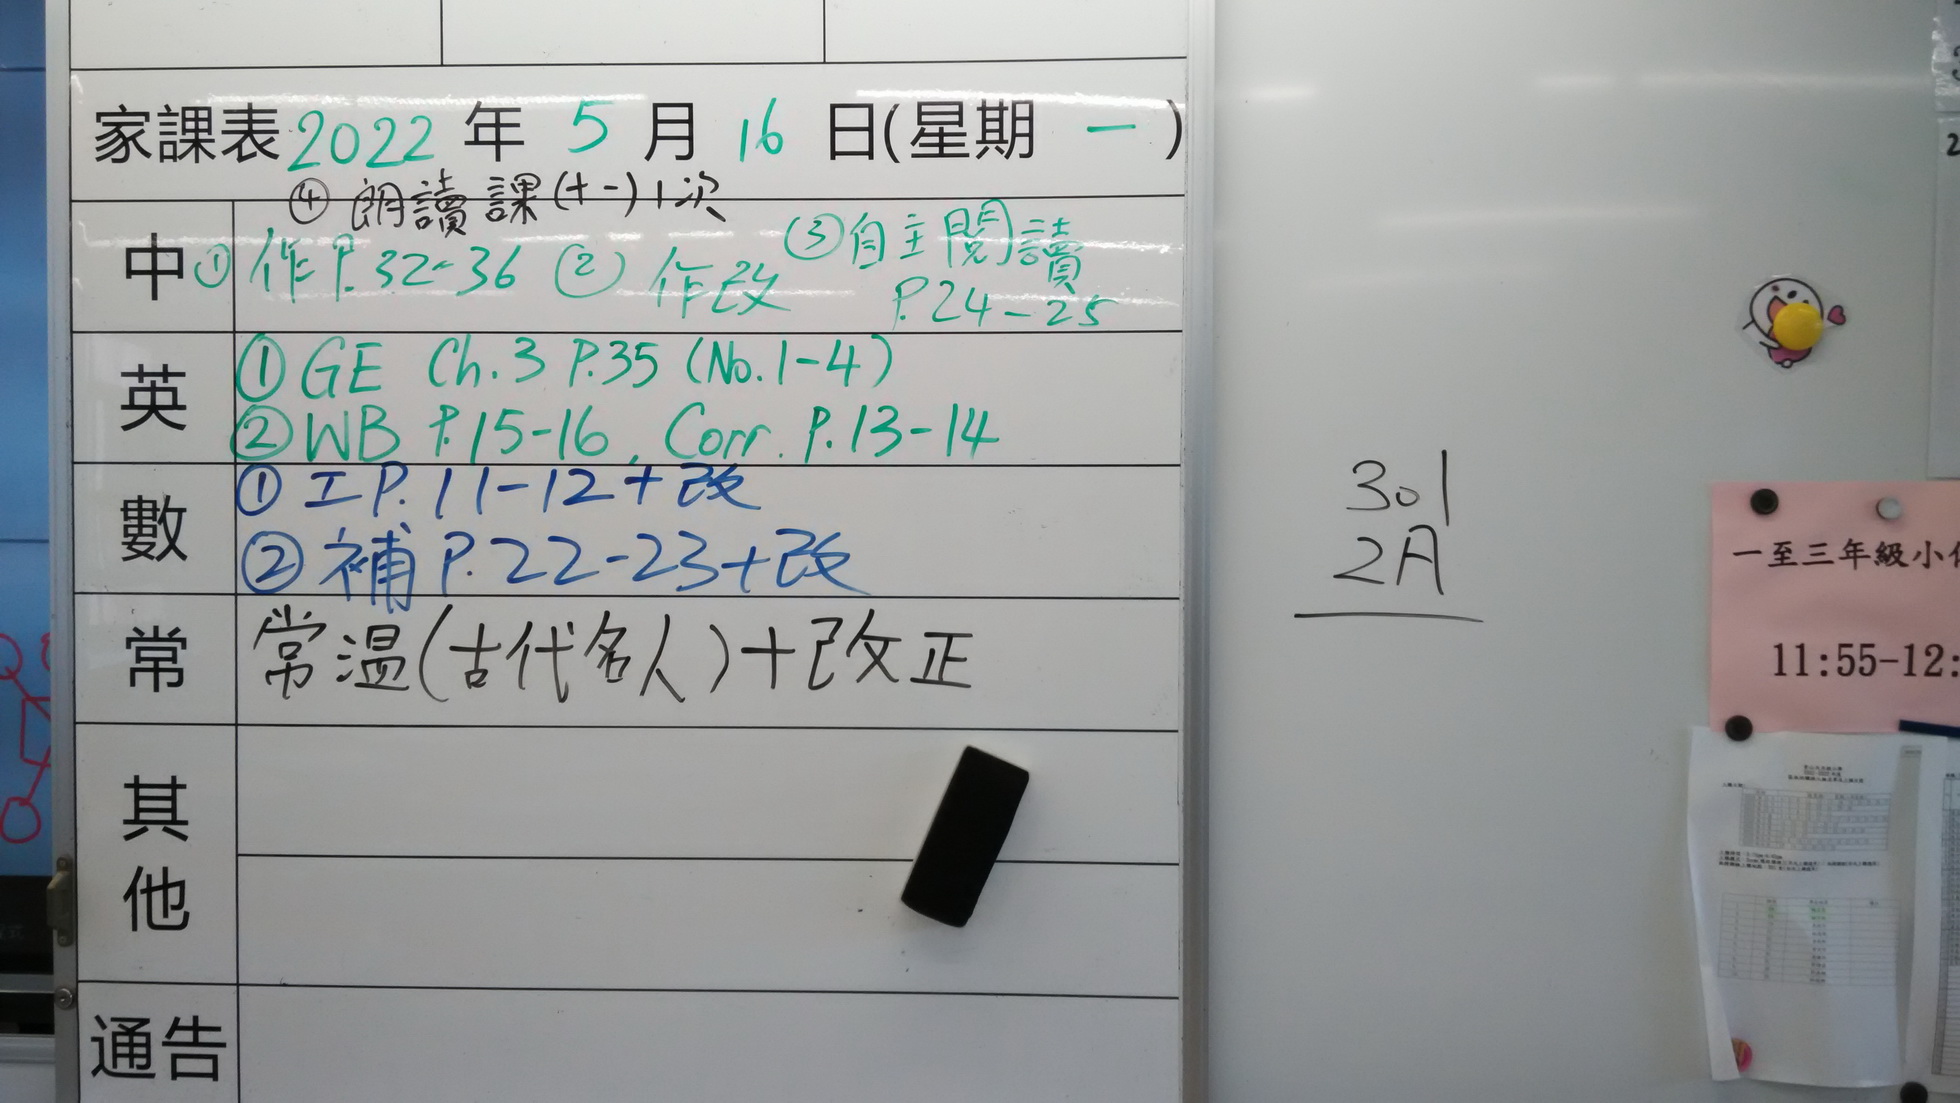 家課表 2022 年 5 月 16 日(星期 一)
④ 朗讀 課(十一)1次
中 ① 作 P.32-36 ② 作改 ③ 自主閱讀
P.24-25
英 ① GE Ch.3 P.35 (No.1-4)
② WB P.15-16, Corr. P.13-14
數 ① 工 P.11-12+改
② 補 P.22-23+改
常 常温(古代名人)+改正
其
他
通告
301
2A
一至三年級小
11:55-12: